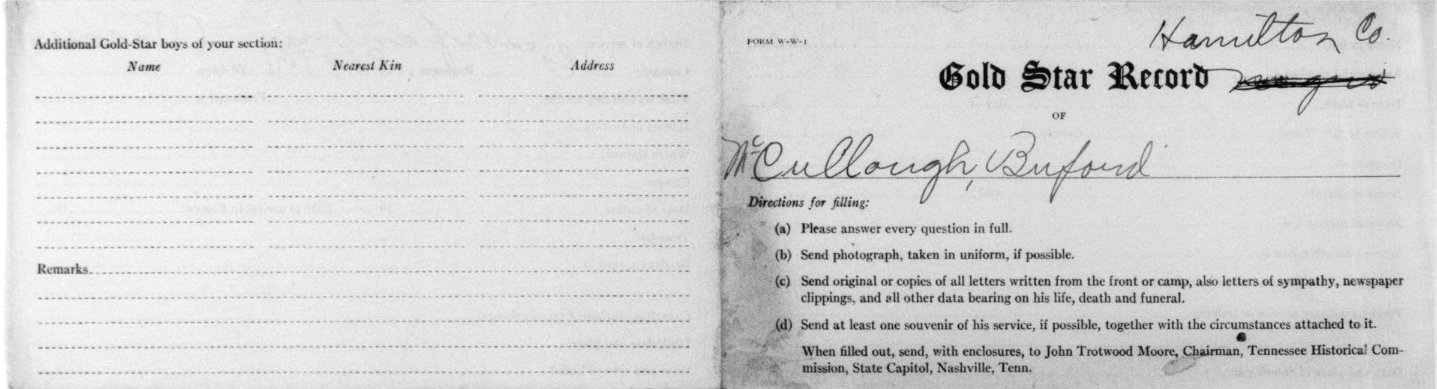 Additional Gold-Star boys of your section:
Name Nearest Kin Address
Remarks
FORM W-W-1
Hamilton Co.
Gold Star Record
OF
McCullough, Buford
Directions for filling:
(a) Please answer every question in full.
(b) Send photograph, taken in uniform, if possible.
(c) Send original or copies of all letters written from the front or camp, also letters of sympathy, newspaper
clippings, and all other data bearing on his life, death and funeral.
(d) Send at least one souvenir of his service, if possible, together with the circumstances attached to it.
When filled out, send, with enclosures, to John Trotwood Moore, Chairman, Tennessee Historical Com-
mission, State Capitol, Nashville, Tenn.